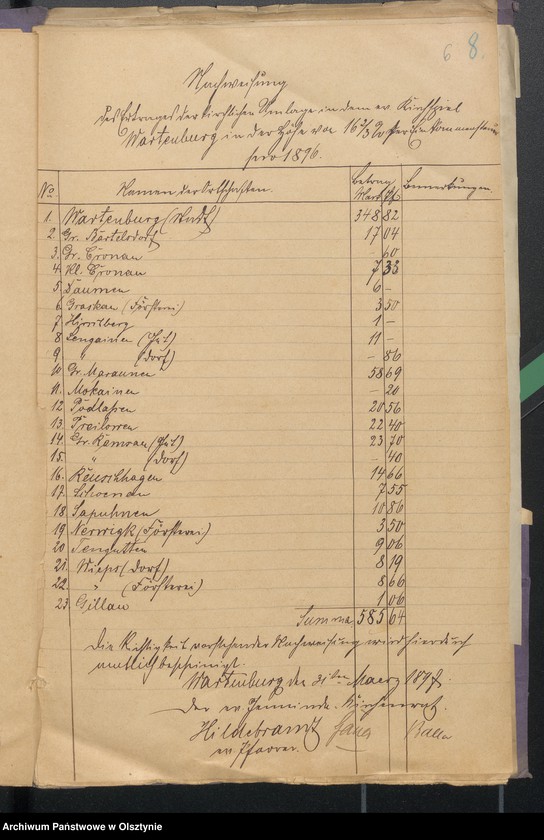 6 8.
Nachweisung
des Ertrages der kirchlichen Umlage in dem ev. Kirchspiel
Wartenburg in der Höhe von 16 2/3 % der
pro 1896.
No. Namen der Ortschaften. Betrag Bemerkungen.
Mark Pf.
1. Wartenburg (Stadt) 348 82
2. Gr. Bartelsdorf 17 04
3. Gr. Cronau 60
4. Kl. Cronau 7 33
5. Daumen 6 –
6. Graskau (Försterei) 3 50
7. Hirschberg 1 –
8. Lengainen (Gut) 11 –
9. " (Dorf) – 86
10. Gr. Maraunen 58 69
11. Mokainen – 20
12. Podlassen 20 56
13. Preilowen 22 40
14. Gr. Ramsau (Gut) 23 70
15. " (Dorf) – 40
16. Reuschhagen 14 66
17. Schoenau 7 55
18. Sapuhnen 10 86
19. Nerwigk (Försterei) 3 50
20. Tengutten 9 06
21. Wieps (Dorf) 8 19
22. " (Försterei) 8 66
23. Gillau 1 06
Summa 585 64
Die Richtigkeit vorstehender Nachweisung wird hierdurch
amtlich bescheinigt.
Wartenburg den 31ten Maerz 1897.
Der ev. Gemeinde-Kirchenrat.
Hildebrandt
ev. Pfarrer.
Archiwum Państwowe w Olsztynie